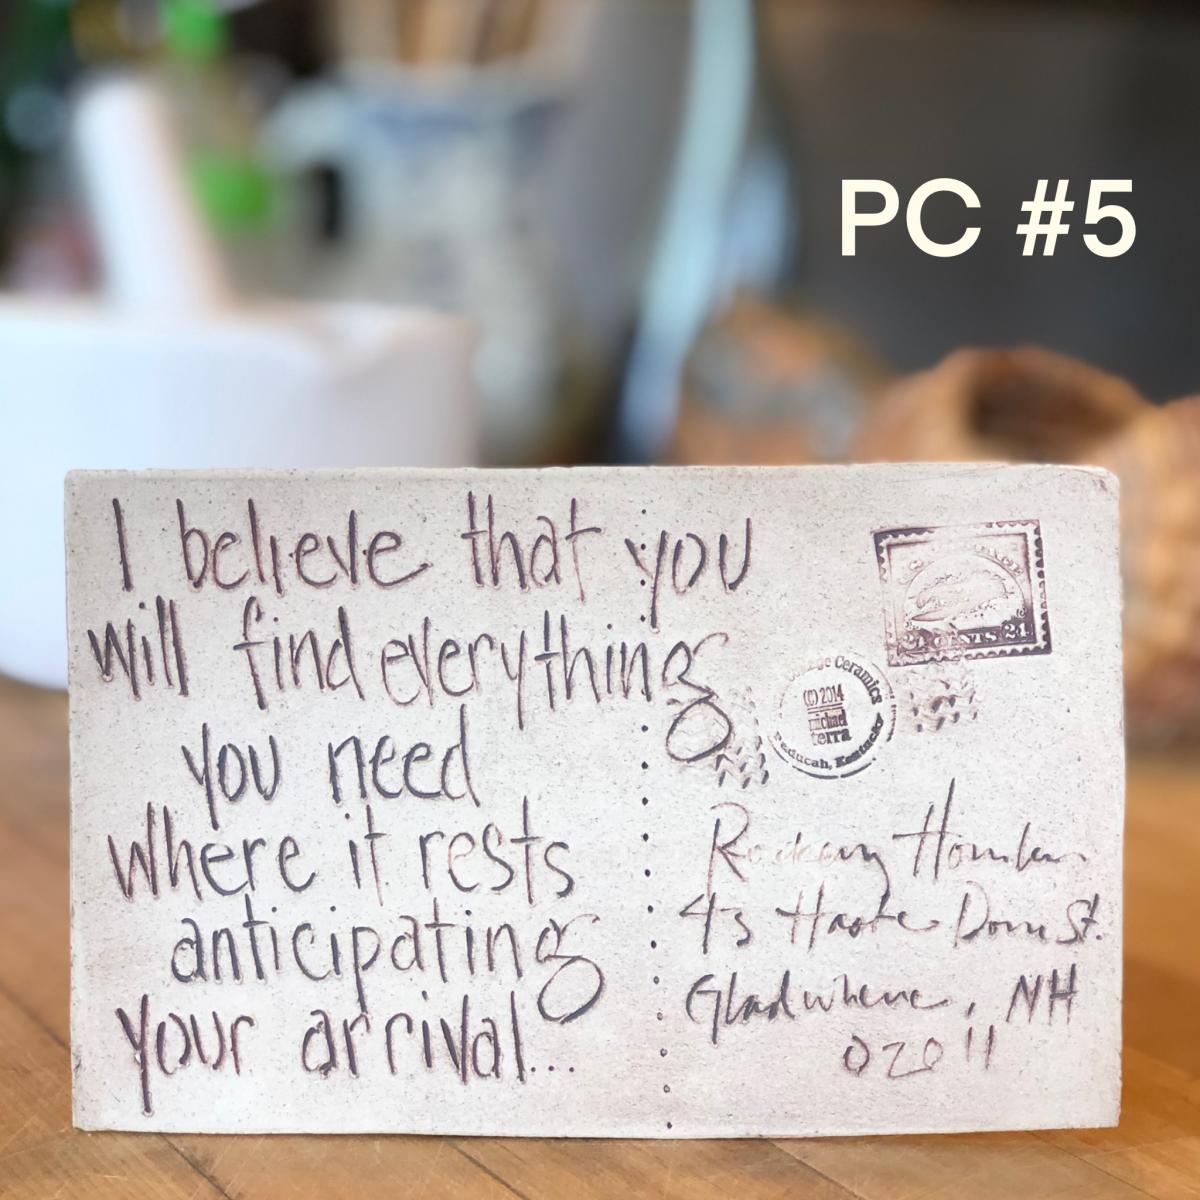 PC #5
I believe that you
will find everything
you need
where it rests
anticipating
your arrival...
24 CENTS 24
Ceramics
(C) 2014
michael
terra
Paducah, Kentucky
43 St.
Gladwhere, NH
02011